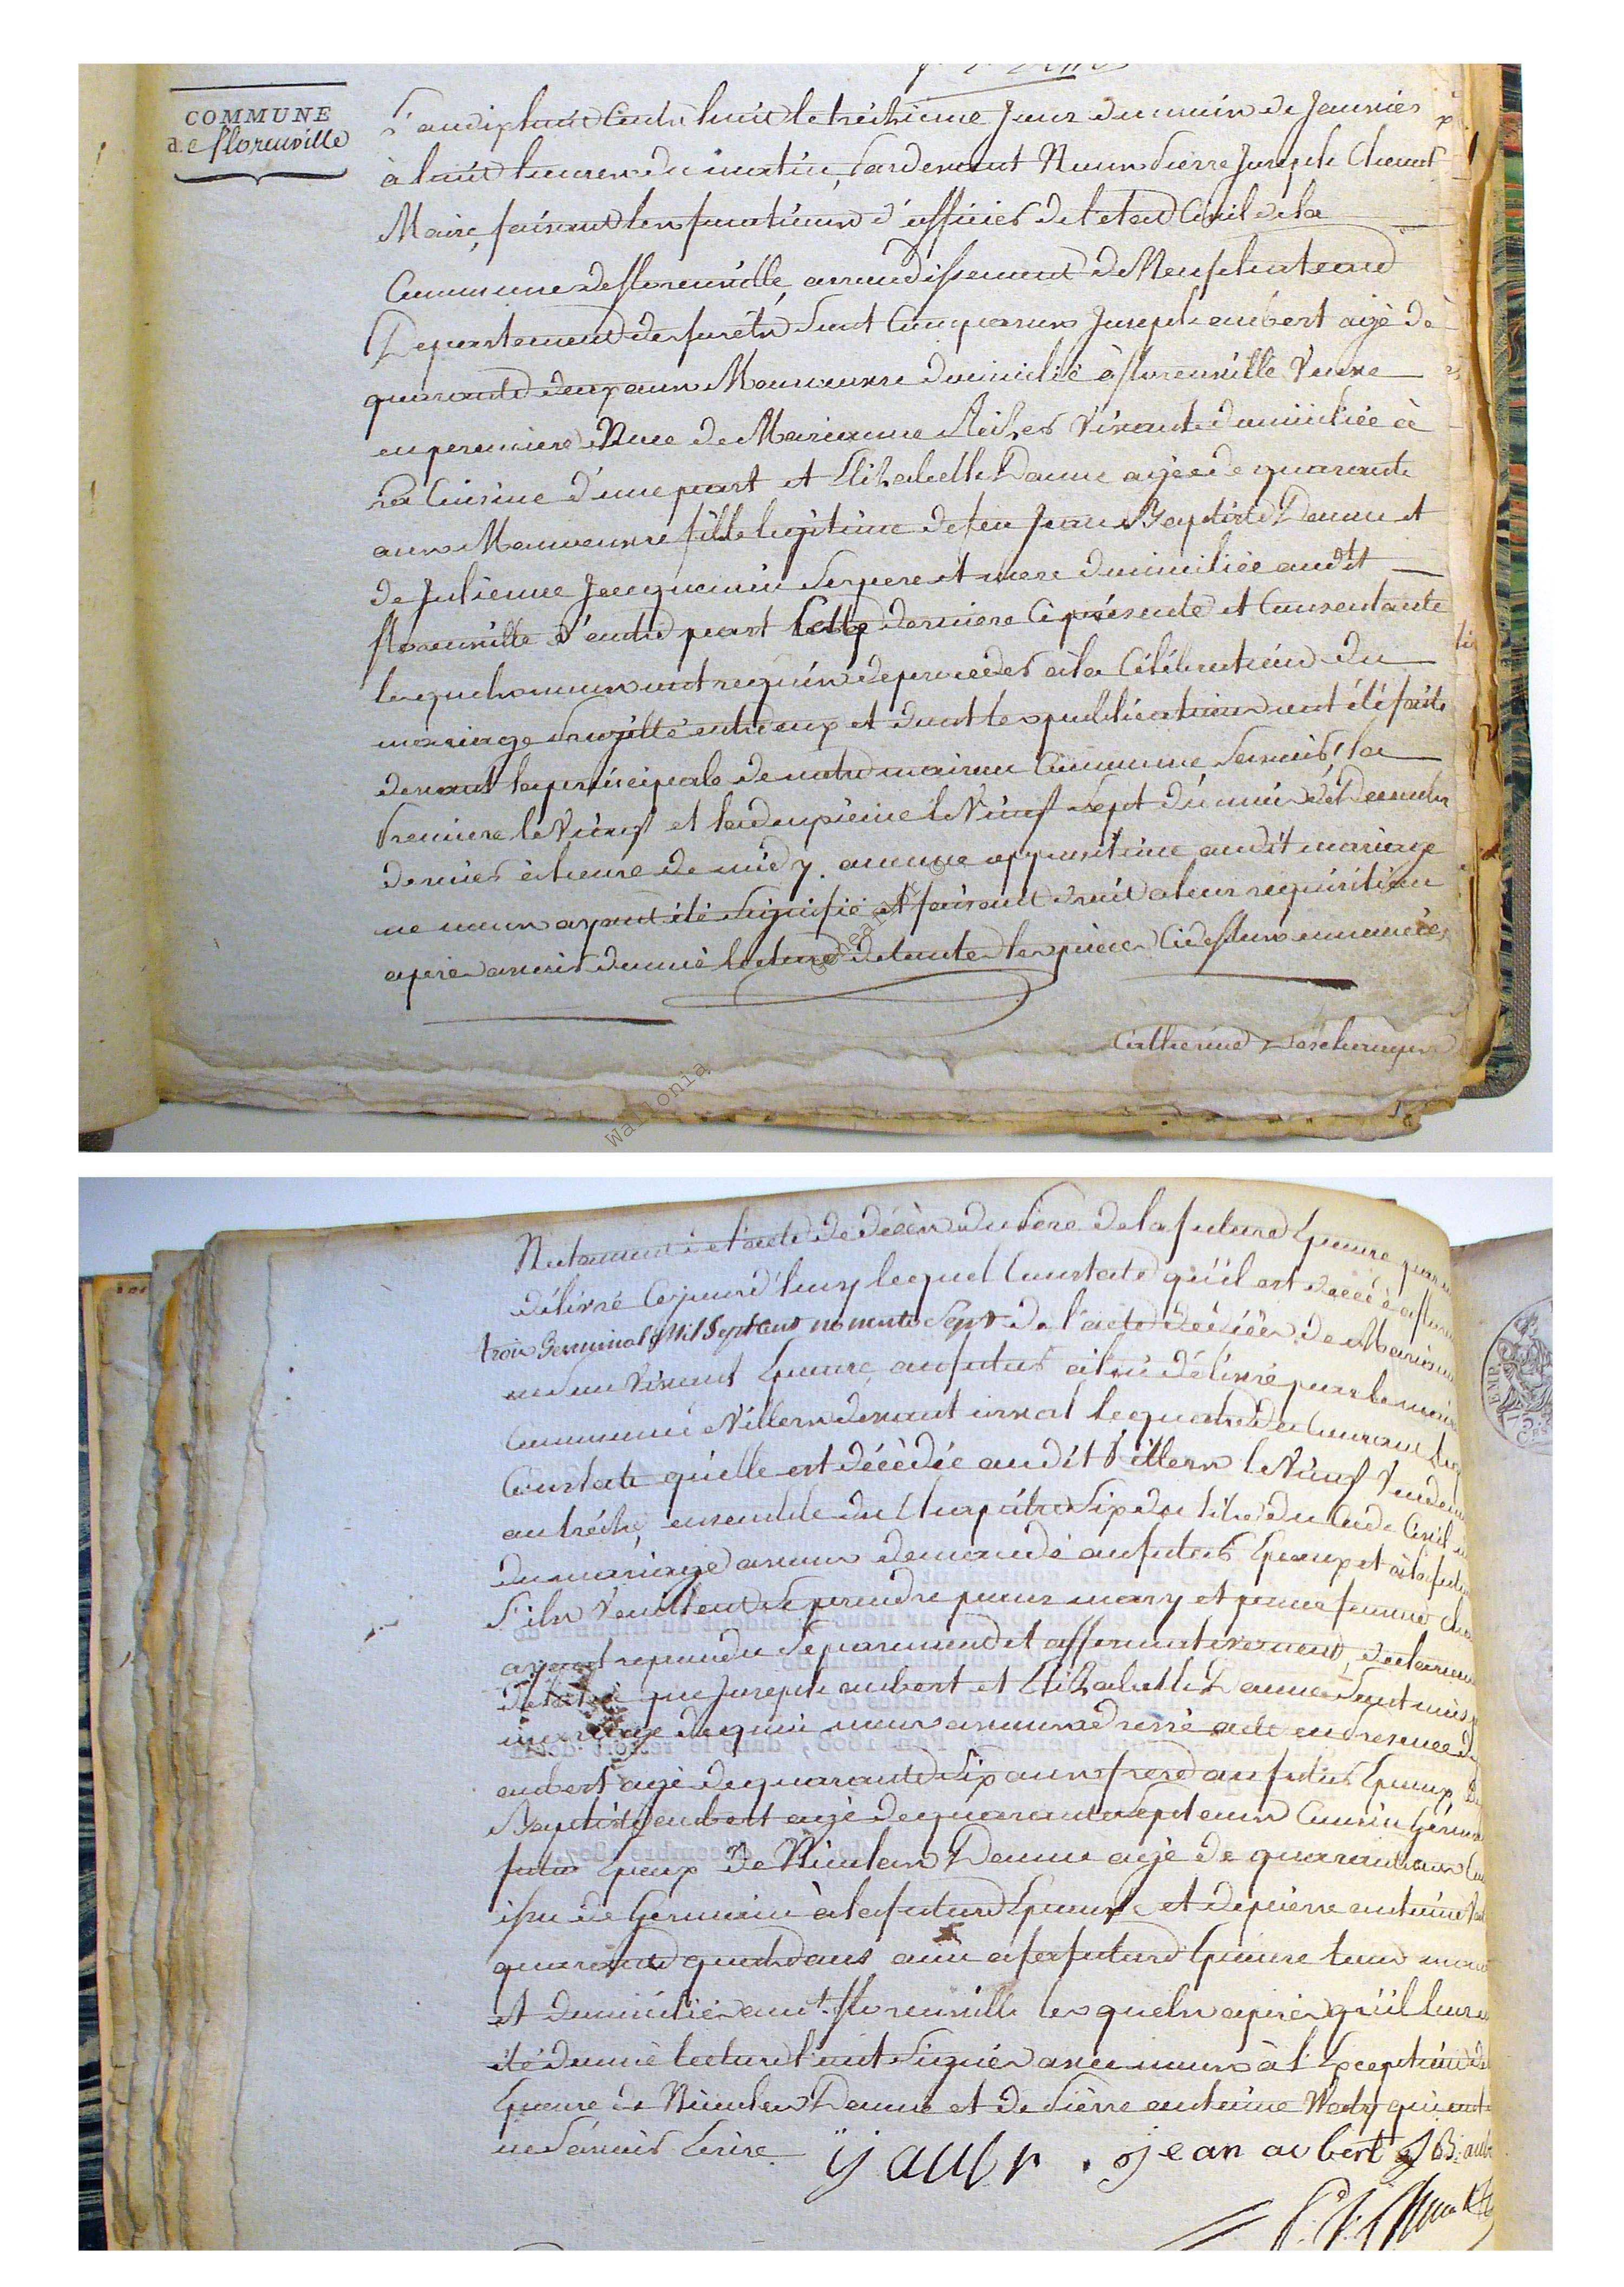 COMMUNE
de florenville
L'an dix huit Cents huit le treizieme Jour du mois de Janvier
à huit heures du matin, Pardevant Nous Pierre Joseph
Maire, faisant les fonctions d'officier de l'etat Civil de la
Commune de florenville, arrondissement de Neufchateau
Departement des forêts sont Comparus Joseph aubert agé de
quarante deux ans Manoeuvre domicilié à florenville Veuve
en premiere Nuce de Marianne Vivante domiciliée à
La Cuisine d'une part et Elizabethe Danne agée de quarante
ans Manoeuvre fille legitime de feu Jean Baptiste Danne et
de Julienne Jacquemin Ses pere et mere domiciliée audt
florenville d'autre part Cette derniere Ci présente et Consentante
lesquels nous ont requis de proceder à la Célébration du
mariage projetté entr'eux et dont les publications ont été faite
devant la principale de notre maison Commune Savoir, la
Premiere le Vingt et la deuxieme le Vingt Sept du mois de Decembre
dernier à heure de midy. aucune opposition audit mariage
ne nous ayant été Signifié et faisant droit a leur requisition
apres avoir donné lecture de toutes les pieces Ci dessus enoncées
Catherine Deschamps
Wallonia
Notamment et l'acte de décès du Pere de la future Epouse par
délivré Ce jourd'huy lequel Constate qu'il est decedé a floren
trois Germinal Mil Sept Cent nonante Sept de l'acte de décès de Marianne
en son Vivant Epouse au futur à lui délivré par le maire
Commune Villers devant orval le quatre du Courant leq
Constate qu'elle est décédée audit Villers le Vingt Vendem
an treize, ensemble du Chapitre Six du titre du Code Civil
du mariage avons demandé au futur Epoux et à la future
S'ils Veuillent Se prendre pour mary et pour femme Cha
ayant repondu Séparement et affermativement, declarons
de la loi que Joseph aubert et Elizabethe Danne Sont unis
mariage de quoi nous avons dressé acte en presence de
aubert agé de quarante Six ans frere au futur Epoux, De
Baptiste aubert agé de quarante Sept ans Cousin Germain
futur Epoux de Nicolas Danne agé de quarante ans
issu de Germain à la future Epouse et de pierre antoine
quarante quatre ans ami a la future Epouse tous
et domiciliés audt. florenville lesquels apres qu'il leur
été donné lecture l'ont Signés avec nous à l'Exception de
Epouse de Nicolas Danne et de Pierre antoine Wady qui ont
ne Savoir Ecrire
jean aubert JB: aub